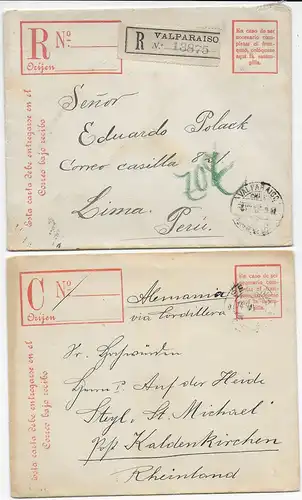 R Nº
Orijen
VALPARAISO
R Nº 13875
En caso de ser
necesario com-
pletar el fran-
queo, colóquese
aquí la estam-
pilla.
Esta carta debe entregarse en el
Correo bajo recibo
Señor
Eduardo Polack
Correo casilla
Lima
Perú.
VALPARAISO
C Nº
Orijen
En caso de ser
necesario com-
Esta carta debe entregarse en el
Correo bajo recibo
Alemania
via Cordillera
Sr. Hochwürden
Herrn P. Auf der Heide
Steyl, St. Michael
Post Kaldenkirchen
Rheinland